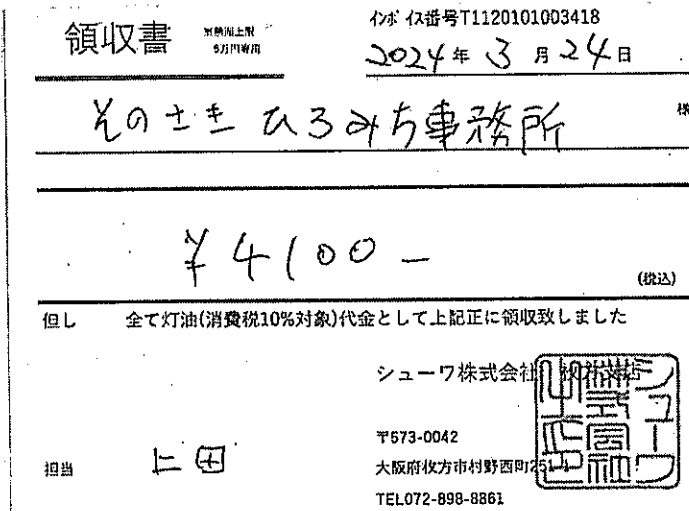 領収書
5万円専用
インボイス番号T1120101003418
2024年3月24日
そのさきひろみち事務所 様
¥4100-
(税込)
但し 全て灯油(消費税10%対象)代金として上記正に領収致しました
シューワ株式会社 枚方支店
〒573-0042
担当 上田
大阪府枚方市村野西町
TEL072-898-8861
シューワ株式会社之印